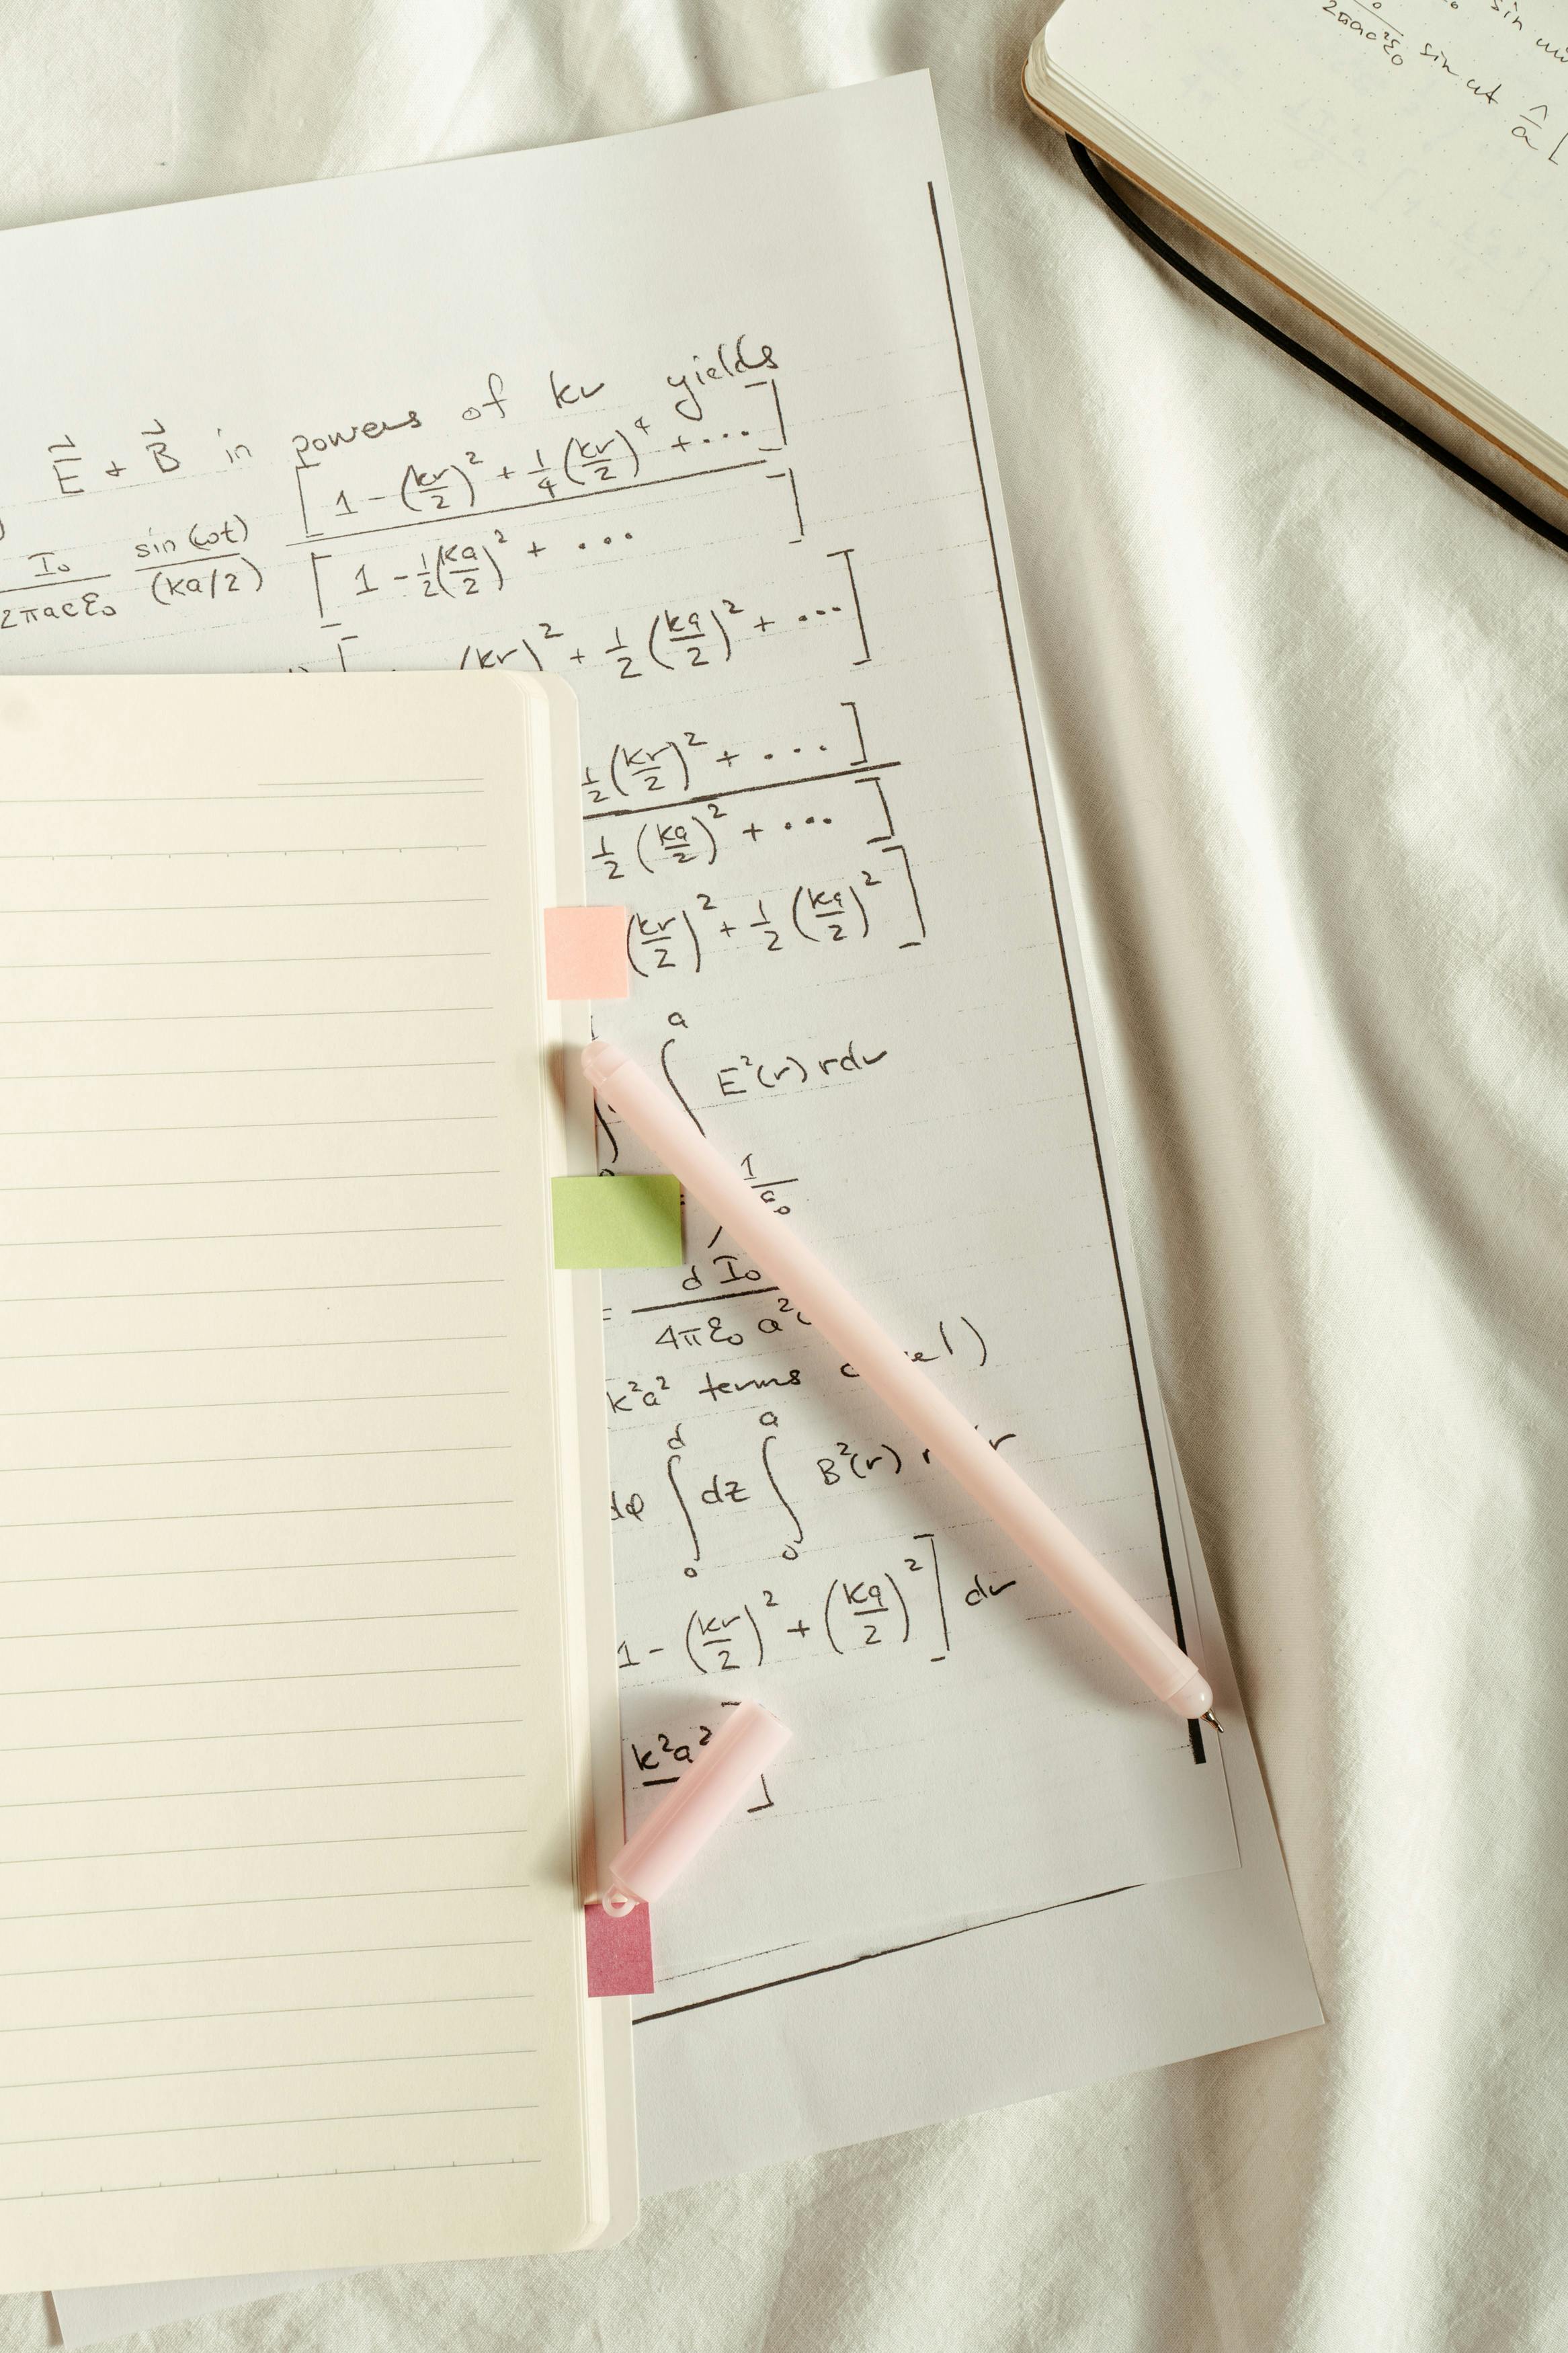 E⃗ + B⃗ in powers of kr yields
I₀/(2πacε₀) sin(ωt)/(ka/2) [1 - (kr/2)² + 1/4 (kr/2)⁴ + ...] / [1 - 1/2 (ka/2)² + ...]
(kr)² + 1/2 (ka/2)² + ...]
1/2 (kr/2)² + ...]
1/2 (ka/2)² + ...]
(kr/2)² + 1/2 (ka/2)²]
∫ᵃ E²(r) rdr
= d I₀ / 4πε₀ a²
k²a² terms
dφ ∫₀ᵈ dz ∫₀ᵃ B²(r)
1 - (kr/2)² + (ka/2)²] dr
k²a²
]
sin
2πac²ε₀ sin ωt â [